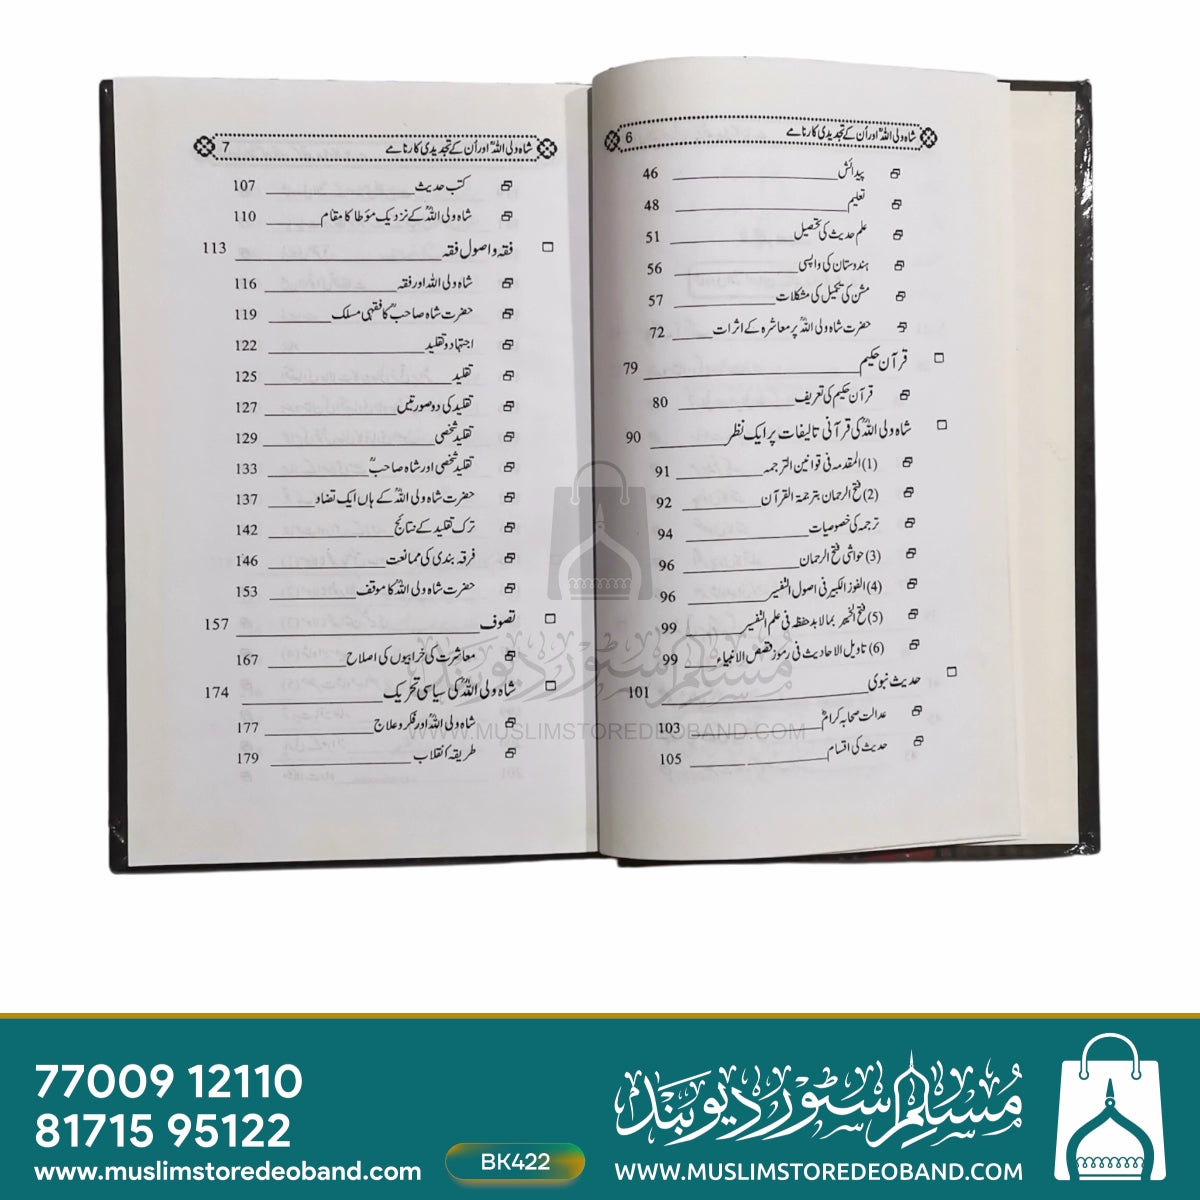 شاہ ولی اللہؒ اور اُن کے تجدیدی کارنامے 6
پیدائش 46
تعلیم 48
علم حدیث کی تحصیل 51
ہندوستان کی واپسی 56
مشن کی تکمیل کی مشکلات 57
حضرت شاہ ولی اللہؒ پر معاشرہ کے اثرات 72
قرآن حکیم 79
قرآن حکیم کی تعریف 80
شاہ ولی اللہؒ کی قرآنی تالیفات پر ایک نظر 90
(1) المقدمہ فی قوانین الترجمہ 91
(2) فتح الرحمان بترجمۃ القرآن 92
ترجمہ کی خصوصیات 94
(3) حواشی فتح الرحمان 96
(4) الفوز الکبیر فی اصول التفسیر 96
(5) فتح الخبیر بما لابد حفظہ فی علم التفسیر 99
(6) تاویل الاحادیث فی رموز قصص الانبیاء 99
حدیث نبوی 101
عدالت صحابہ کرامؓ 103
حدیث کی اقسام 105
شاہ ولی اللہؒ اور اُن کے تجدیدی کارنامے 7
کتب حدیث 107
شاہ ولی اللہؒ کے نزدیک مؤطا کا مقام 110
فقہ و اصول فقہ 113
شاہ ولی اللہ اور فقہ 116
حضرت شاہ صاحبؒ کا فقہی مسلک 119
اجتہاد و تقلید 122
تقلید 125
تقلید کی دو صورتیں 127
تقلید شخصی 129
تقلید شخصی اور شاہ صاحبؒ 133
حضرت شاہ ولی اللہؒ کے ہاں ایک تضاد 137
ترک تقلید کے نتائج 142
فرقہ بندی کی ممانعت 146
حضرت شاہ ولی اللہؒ کا موقف 153
تصوف 157
معاشرت کی خرابیوں کی اصلاح 167
شاہ ولی اللہؒ کی سیاسی تحریک 174
شاہ ولی اللہؒ اور فکر و علاج 177
طریقہ انقلاب 179
مسلم سٹور دیوبند
WWW.MUSLIMSTOREDEOBAND.COM
77009 12110
81715 95122
www.muslimstoredeoband.com
BK422
مسلم سٹور دیوبند
WWW.MUSLIMSTOREDEOBAND.COM